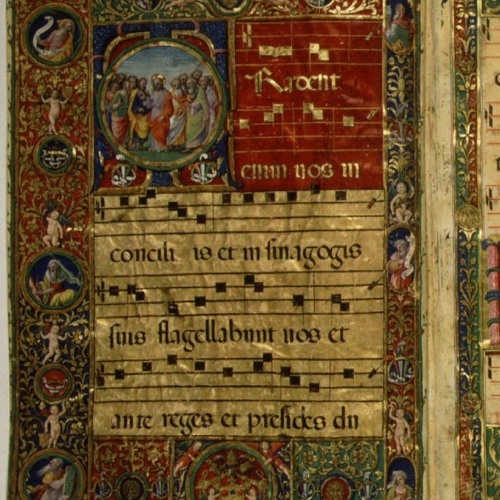 Radent
enim vos in
concili is et in sinagogis
suis flagellabunt vos et
ante reges et presides du